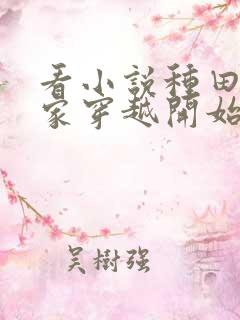 看小說種田
家穿越開始
吴樹强